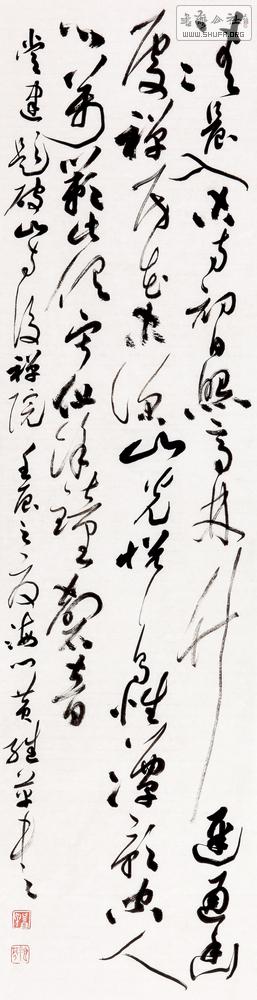 清晨入古寺初日照高林竹逕通幽
處禪房花木深山光悦鳥性潭影空人
心萬籟此俱寂但餘鐘磬音
常建題破山寺後禪院 壬辰之夏海门黄
WWW.SHUFA.ORG